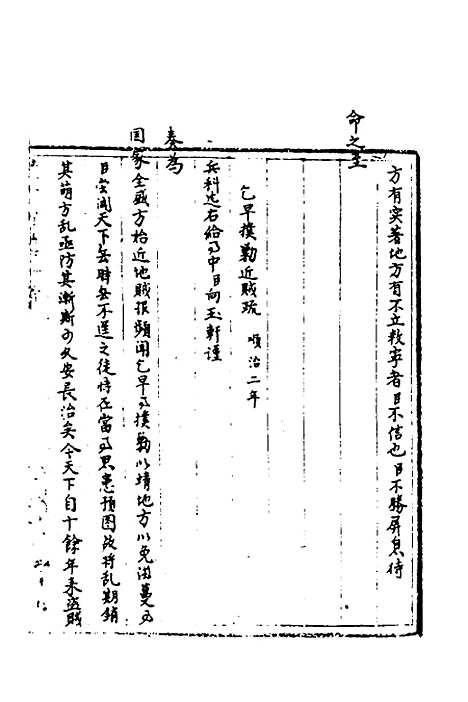 方有实著地方有不立救寧者臣不信也臣不勝屏息待
命之至
乞早撲勦近賊疏 順治二年
兵科左右給事中臣向玉軒謹
奏為
国家全盛方始近地賊报頻聞乞早為撲勦以靖地方以免滋蔓事
臣尝闻天下無時無不逞之徒恃在當事思患預图故将乱期銷
其萌方乱亟防其漸斯可久安長治矣今天下自十餘年来盗賊